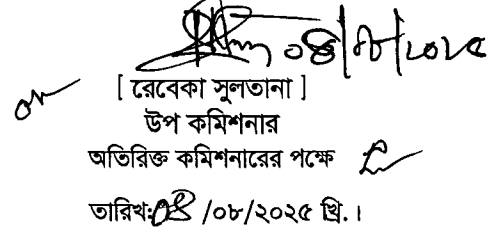 ০৪/৮/২০২৫
[ রেবেকা সুলতানা ]
উপ কমিশনার
অতিরিক্ত কমিশনারের পক্ষে
তারিখ:০৪ /০৮/২০২৫ খ্রি. ।